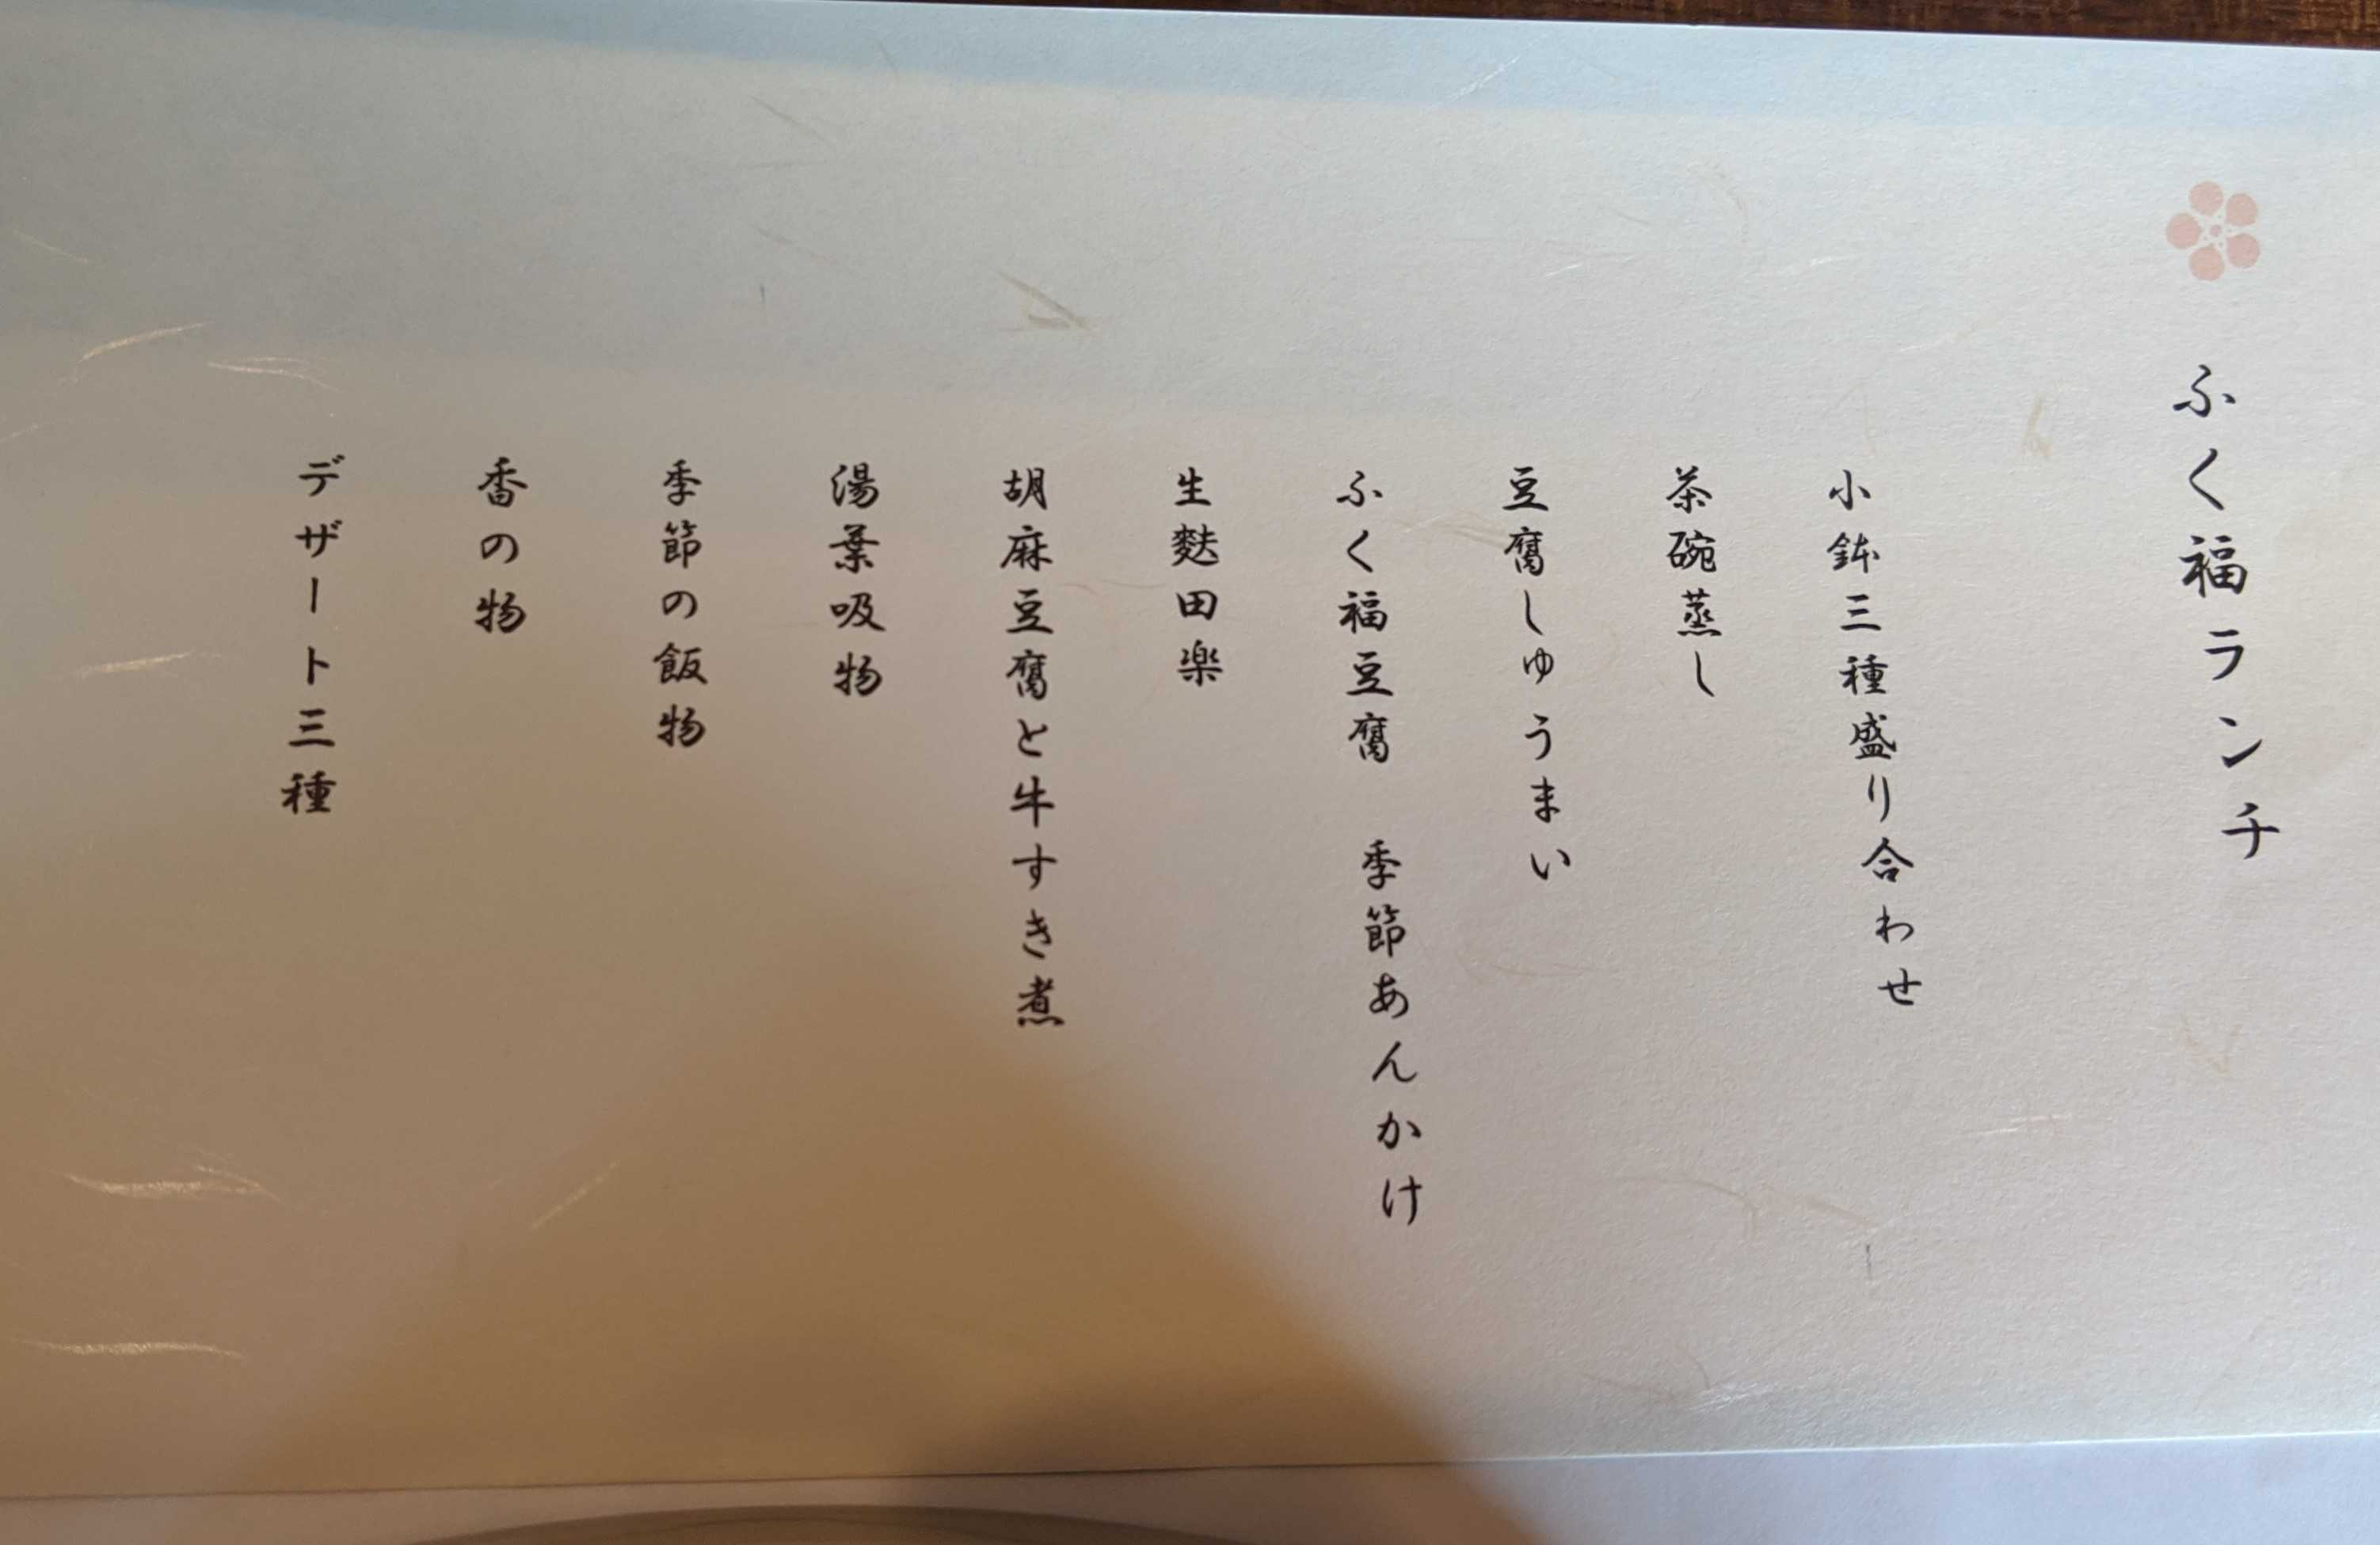 ふく福ランチ
小鉢三種盛り合わせ
茶碗蒸し
豆腐しゅうまい
ふく福豆腐　季節あんかけ
生麩田楽
胡麻豆腐と牛すき煮
湯葉吸物
季節の飯物
香の物
デザート三種